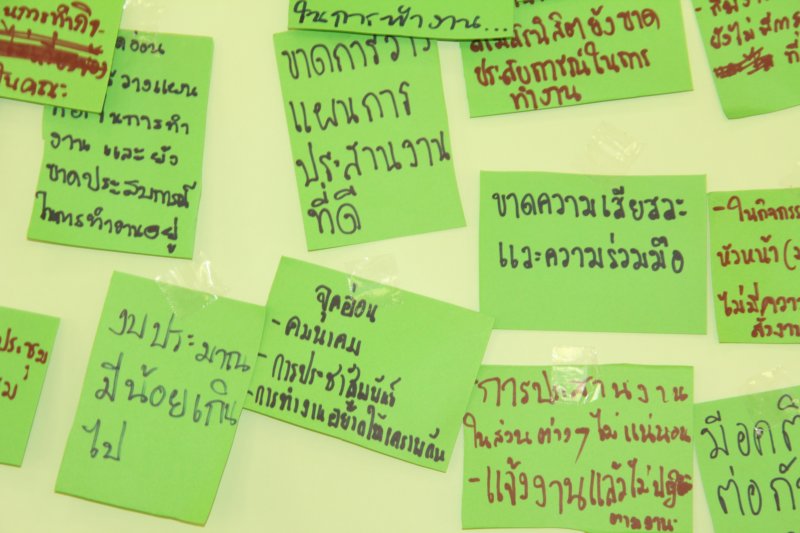 ในคณะ
จุดอ่อน
วางแผน
ในการทำ
งาน และยัง
ขาดประสบการณ์
ในการทำงานอยู่
ในการเข้างาน...
ขาดการวาง
แผนการ
ประสานงาน
ที่ดี
นิสิตยังขาด
ประสบการณ์ในการ
ทำงาน
ยังไม่มีการ
ขาดความเสียสละ
และความร่วมมือ
- ในกิจกรร
หัวหน้า
ไม่มีควา
สั่งงาน
ประชุม
งบประมาณ
มีน้อยเกิน
ไป
จุดอ่อน
- คมนาคม
- การประชาสัมพันธ์
- การทำงานอยากให้เคารพกัน
- การประสานงาน
ในส่วนต่างๆ ไม่แน่นอน
- แจ้งงานแล้วไม่
ตามงาน
มีอคติ
ต่อกัน